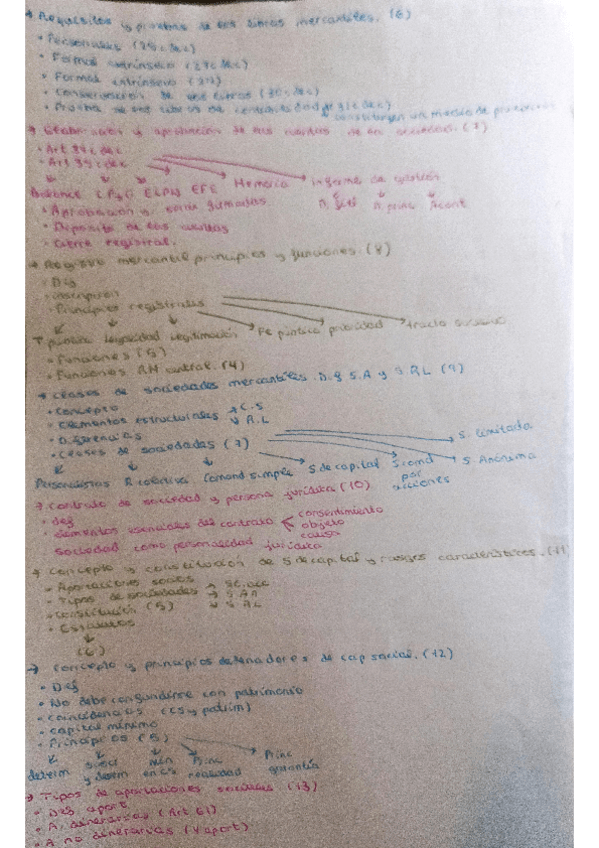 → Requisitos y prueba de los libros mercantiles. (6)
• Personales (25 c. de c)
• Formal extrínseco (27 c. de c)
• Formal intrínseco
• Conservación de los libros (30 c. de c)
• Prueba de los libros de contabilidad (31 c de c)
constituyen un medio de
→ Elaboración y aprobación de las cuentas de la sociedad. (7)
• Art 34 c. de c
• Art 35 c. de c
Balance C. P y G ECPN EFE Memoria informe de gestión
• Aprobación y firmadas.
• Depósito de las cuentas
• Cierre registral.
→ Registro mercantil principios y funciones. (8)
• Def
• inscripción
• Principios registrales
publica legalidad legitimación Fe pública prioridad tracto sucesivo
• Funciones (5)
• Funciones RM central. (4)
→ Clases de sociedades mercantiles. D. S.A y S.RL (9)
• Concepto
• Elementos estructurales → C.S
• Diferencias
• Clases de sociedades (7)
Personalistas Comand simple S de capital S. comd por acciones S. Anónima S. Limitada
→ Contrato de sociedad y persona jurídica (10)
• def
• elementos esenciales del contrato consentimiento
objeto
causa
sociedad como personalidad jurídica
→ Concepto y constitución de S de capital y rasgos característicos. (11)
• Aportaciones socios
• Tipos de sociedades
• Constitución (5)
• Estatutos
(6)
→ Concepto y principios de cap social. (12)
• Def
• No debe confundirse con patrimonio
• Coincidencias (CS y patrim)
• capital mínimo
• Principios (5)
determ y desem min en CS Princ realidad Princ garantía
→ Tipos de aportaciones sociales (13)
• Def aport
• A. dinerarias (Art 61)
• A no dinerarias (4 aport)